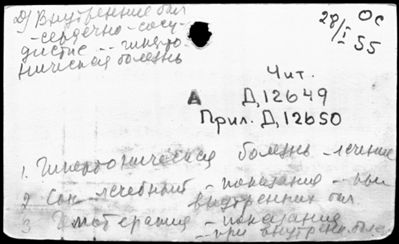 Д) Внутренние бол
- сердечно-сосу-
дистые -- гиперто-
ническая болезнь
ОС
28/I 55
Чит.
А Д,12649
Прил. Д,12650
1. Гипертоническая болезнь - лечение
2 Сон лечебный - показания - при
внутренних бол
3 - показания
- при внутренн. бол.